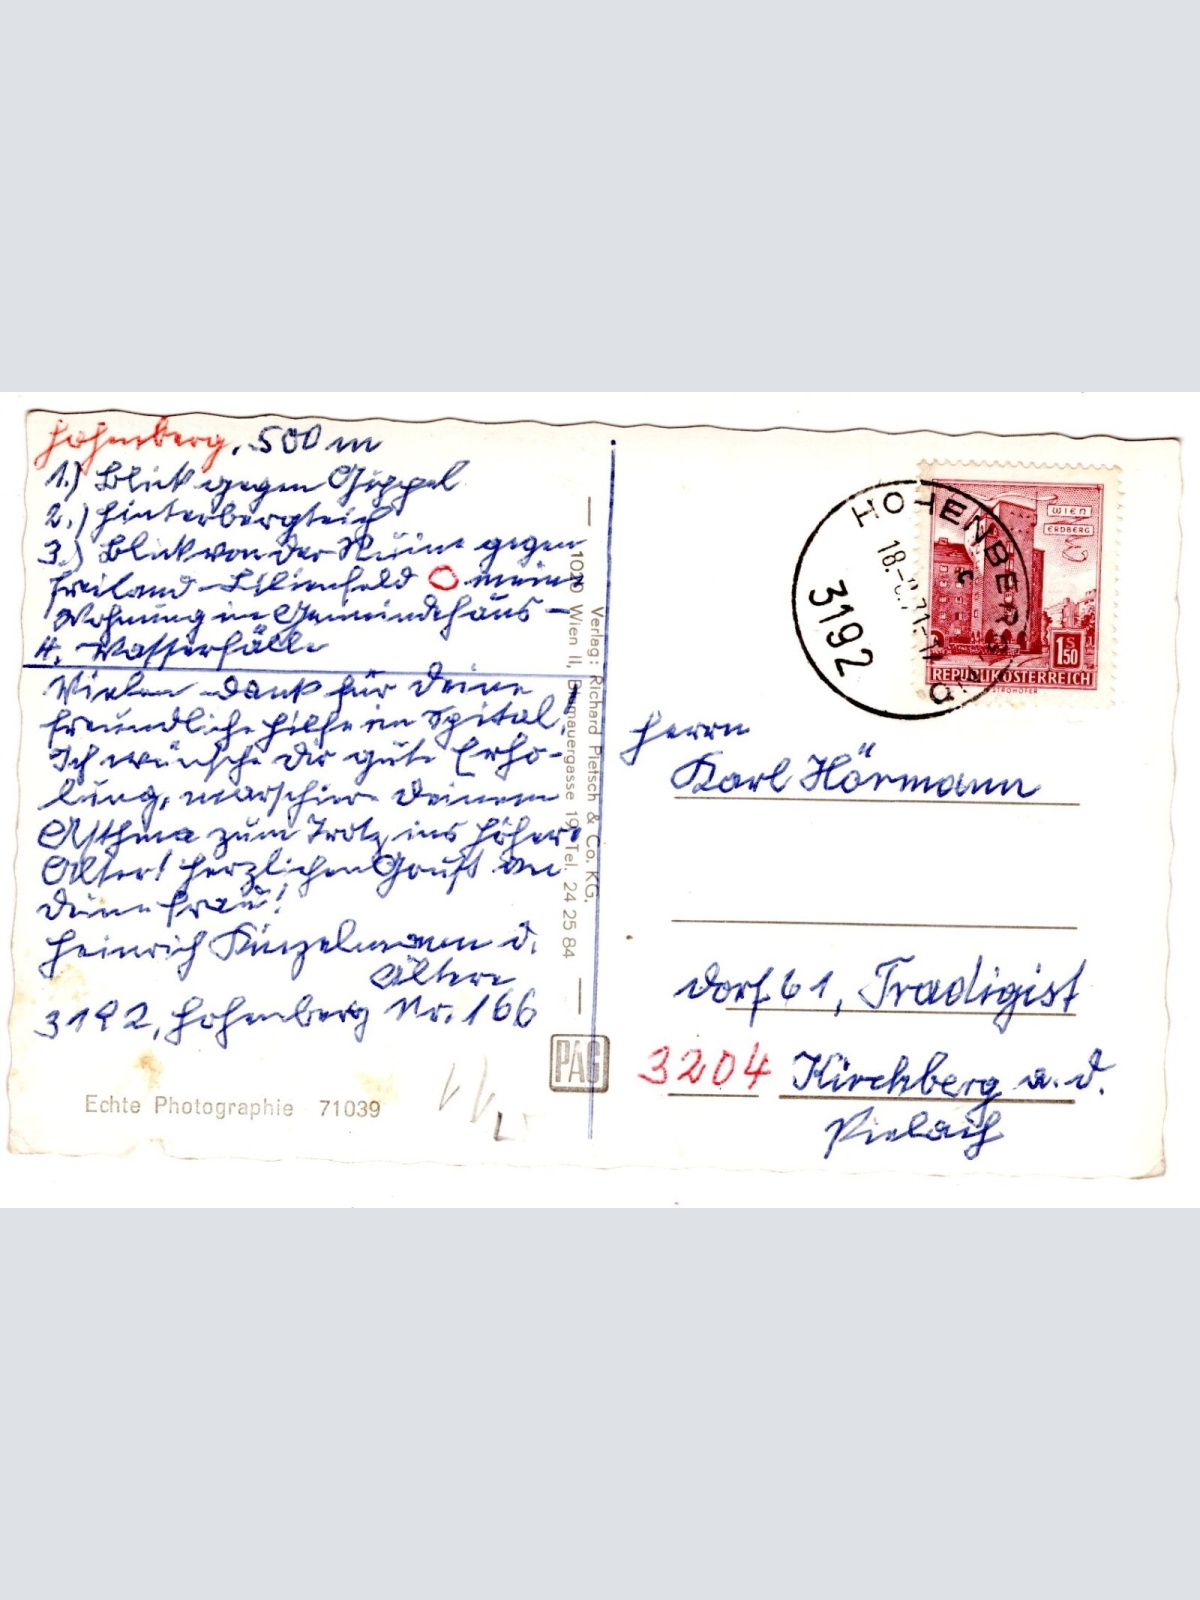 Hohenberg, 500 m
1.) Blick gegen Göppel
2.) Hinterbergteich
3.) Blick von der Ruine gegen
Freiland-Lilienfeld O meine
Wohnung im Gemeindehaus -
4. Wasserfälle
Vielen Dank für Deine
freundliche Hilfe im Spital,
Ich wünsche Dir gute Erho-
lung, marschiere Deinem
Asthma zum Trotz ins höhere
Alter! Herzlichen Gruß an
Deine Frau!
Heinrich Kinzelmann d.
Ältere
3192, Hohenberg Nr. 166
Echte Photographie 71039
Verlag: Richard Pietsch & Co. KG,
1020 Wien II, Blumauergasse 19, Tel. 24 25 84
PAG
HOHENBERG
3192
WIEN
ERDBERG
1 S 50
REPUBLIK ÖSTERREICH
STROHOFER
Herrn
Karl Hörmann
Dorf 61, Tradigist
3204 Kirchberg a. d.
Pielach